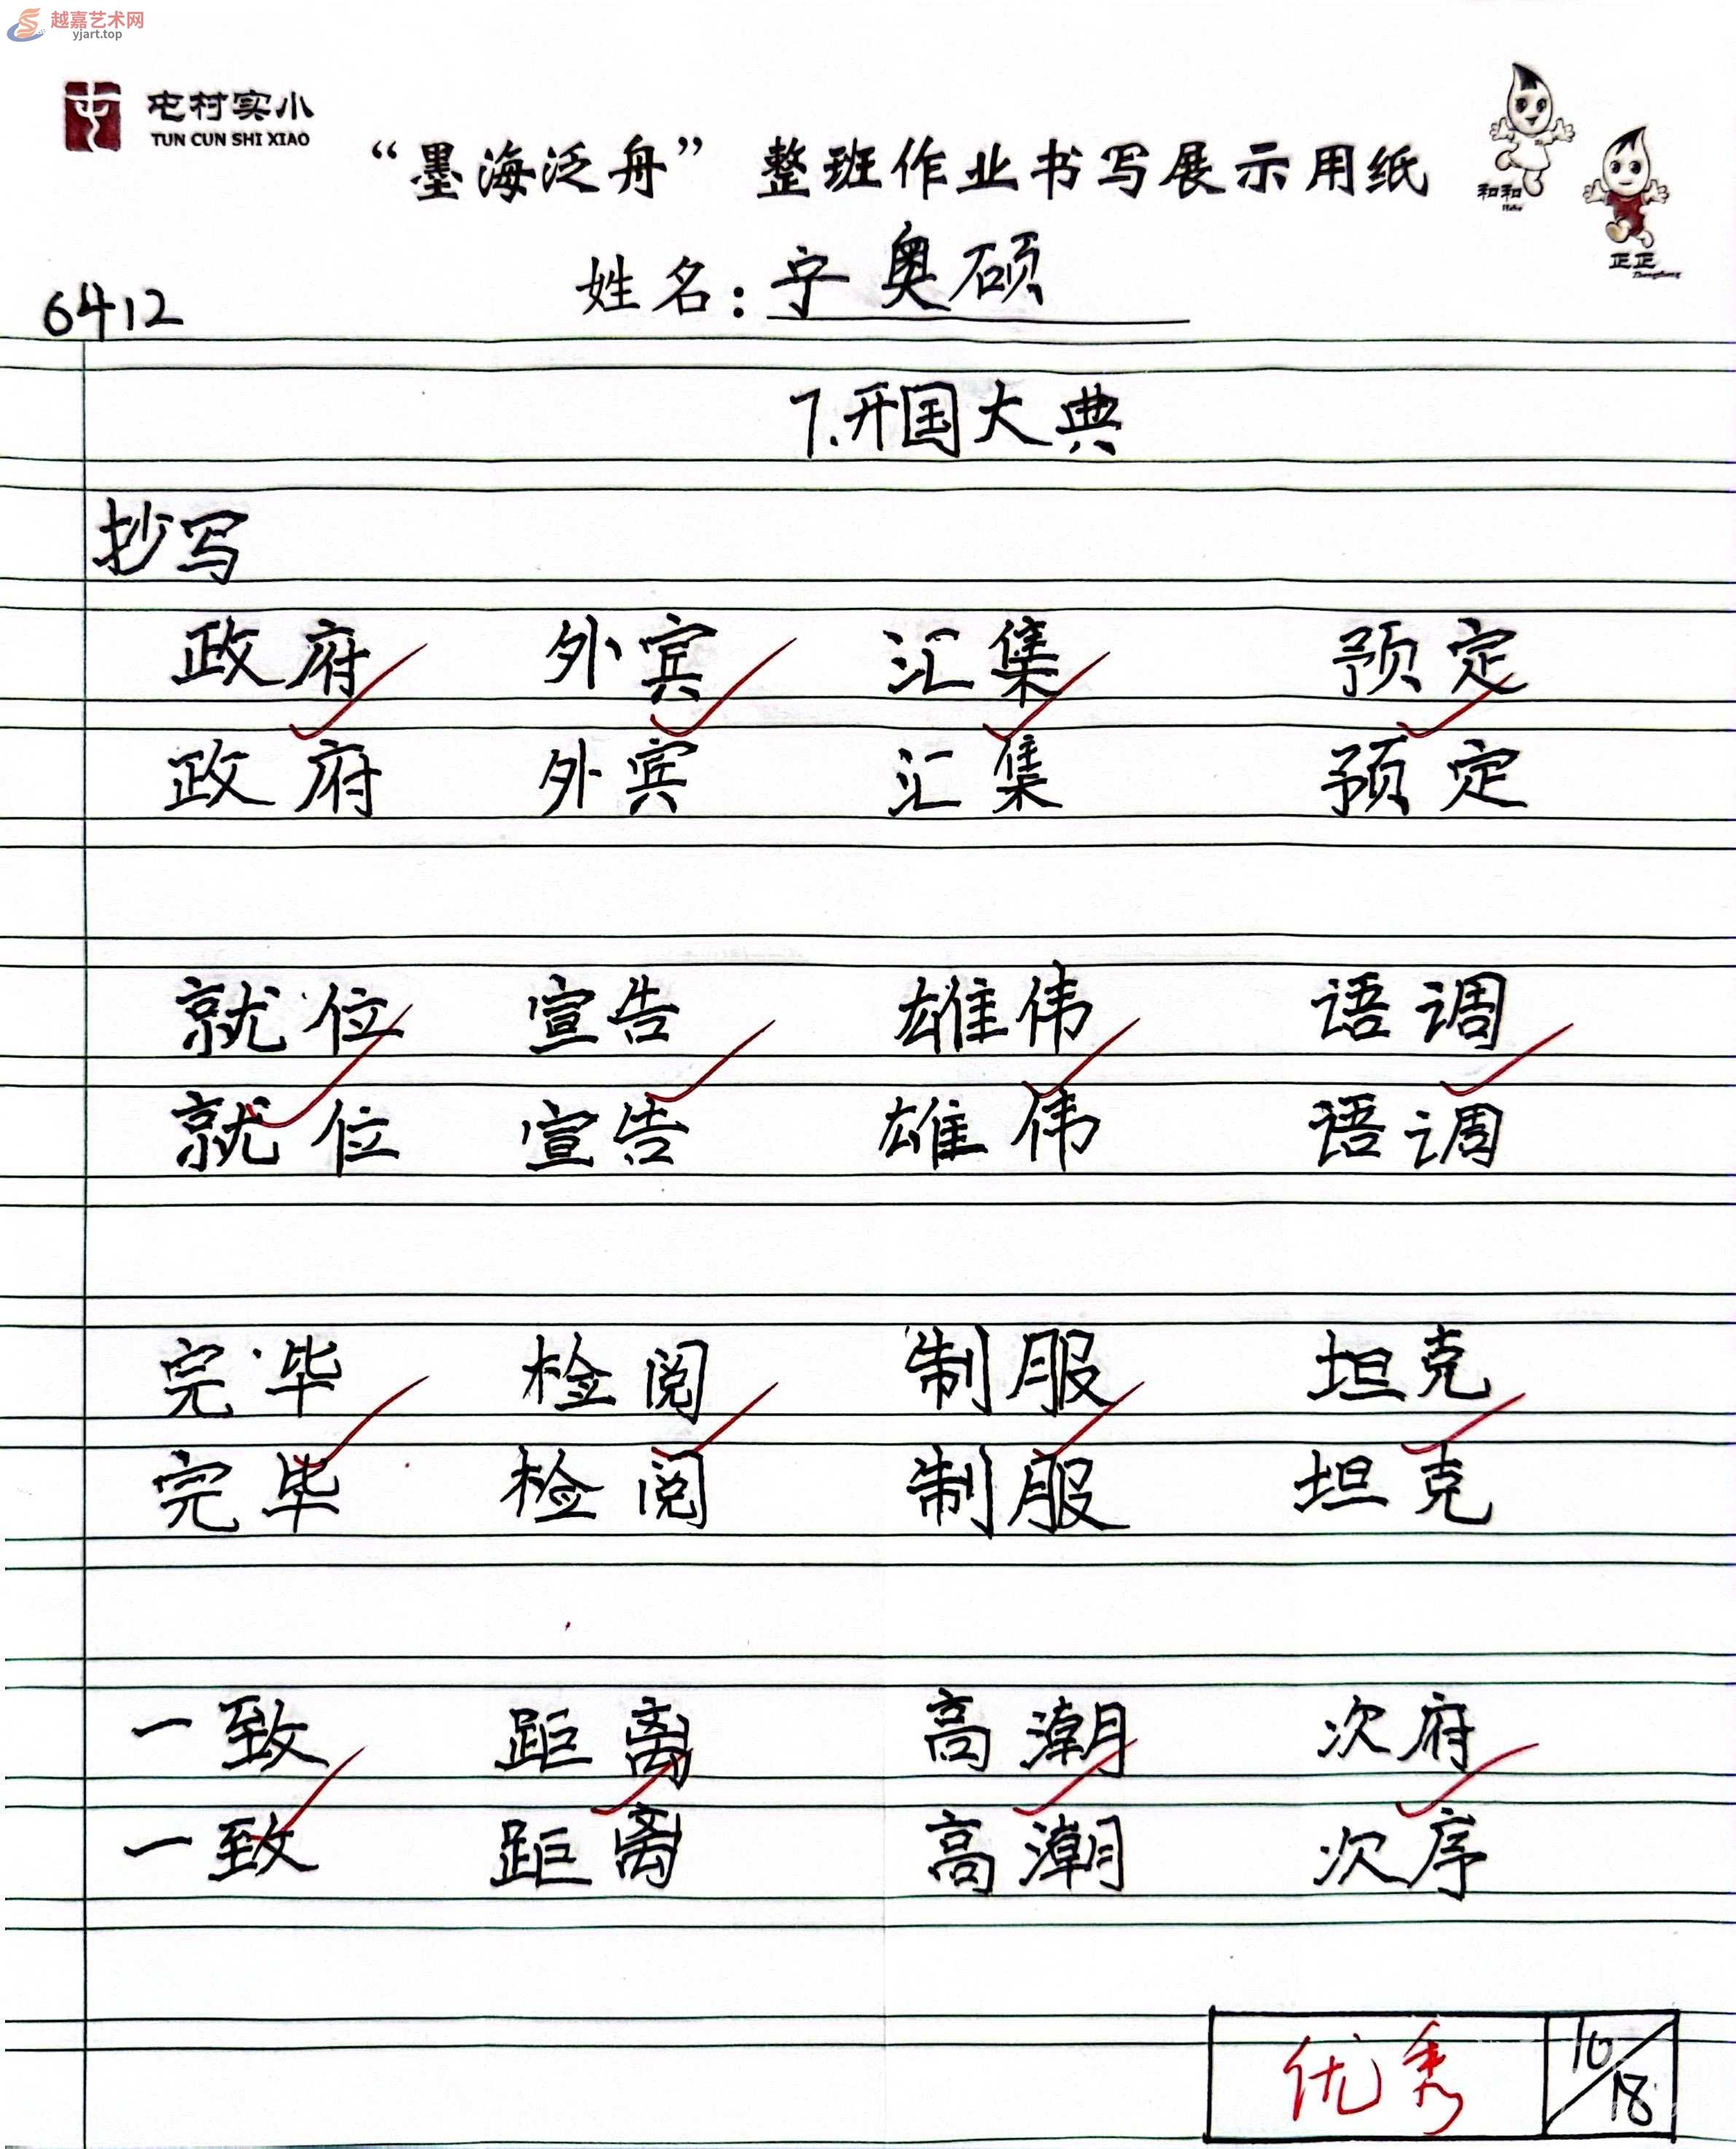 越嘉艺术网
yjart.top
屯村实小
TUN CUN SHI XIAO
“墨海泛舟” 整班作业书写展示用纸
和和
正正
姓名：宁奥硕
6412
7.开国大典
抄写
政府 外宾 汇集 预定
政府 外宾 汇集 预定
就位 宣告 雄伟 语调
就位 宣告 雄伟 语调
完毕 检阅 制服 坦克
完毕 检阅 制服 坦克
一致 距离 高潮 次府
一致 距离 高潮 次序
优秀 10/18